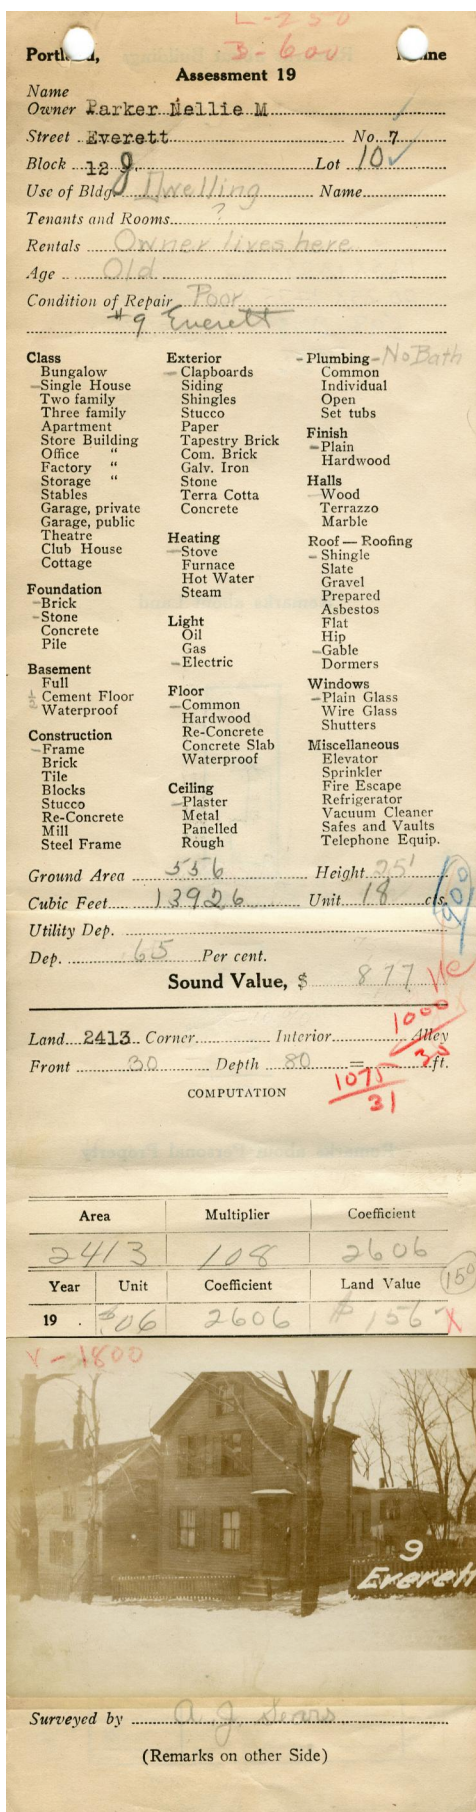 L-250
B-600
Portland, Maine
Assessment 19
Name
Owner Parker Nellie M
Street Everett No. 7
Block 12 g. Lot 10 ✓
Use of Bldg. Dwelling Name
Tenants and Rooms ?
Rentals Owner lives here
Age Old
Condition of Repair Poor
#9 Everett
Class
Bungalow
Single House
Two family
Three family
Apartment
Store Building
Office "
Factory "
Storage "
Stables
Garage, private
Garage, public
Theatre
Club House
Cottage
Foundation
Brick
Stone
Concrete
Pile
Basement
Full
½ Cement Floor
Waterproof
Construction
Frame
Brick
Tile
Blocks
Stucco
Re-Concrete
Mill
Steel Frame
Exterior
Clapboards
Siding
Shingles
Stucco
Paper
Tapestry Brick
Com. Brick
Galv. Iron
Stone
Terra Cotta
Concrete
Heating
Stove
Furnace
Hot Water
Steam
Light
Oil
Gas
Electric
Floor
Common
Hardwood
Re-Concrete
Concrete Slab
Waterproof
Ceiling
Plaster
Metal
Panelled
Rough
Plumbing - No Bath
Common
Individual
Open
Set tubs
Finish
Plain
Hardwood
Halls
Wood
Terrazzo
Marble
Roof — Roofing
Shingle
Slate
Gravel
Prepared
Asbestos
Flat
Hip
Gable
Dormers
Windows
Plain Glass
Wire Glass
Shutters
Miscellaneous
Elevator
Sprinkler
Fire Escape
Refrigerator
Vacuum Cleaner
Safes and Vaults
Telephone Equip.
Ground Area 556 Height 25'
Cubic Feet 13926 Unit 18 cts.
900
Utility Dep.
Dep. 65 Per cent.
Sound Value, $ 877
1000
30
Land 2413 Corner Interior Alley
Front 30 Depth 80 = ft.
1075
31
COMPUTATION
Area Multiplier Coefficient
2413 108 2606
Year Unit Coefficient Land Value 150
19 . $.06 2606 $156 X
V-1800
9
Everett
Surveyed by A. J. Sears
(Remarks on other Side)